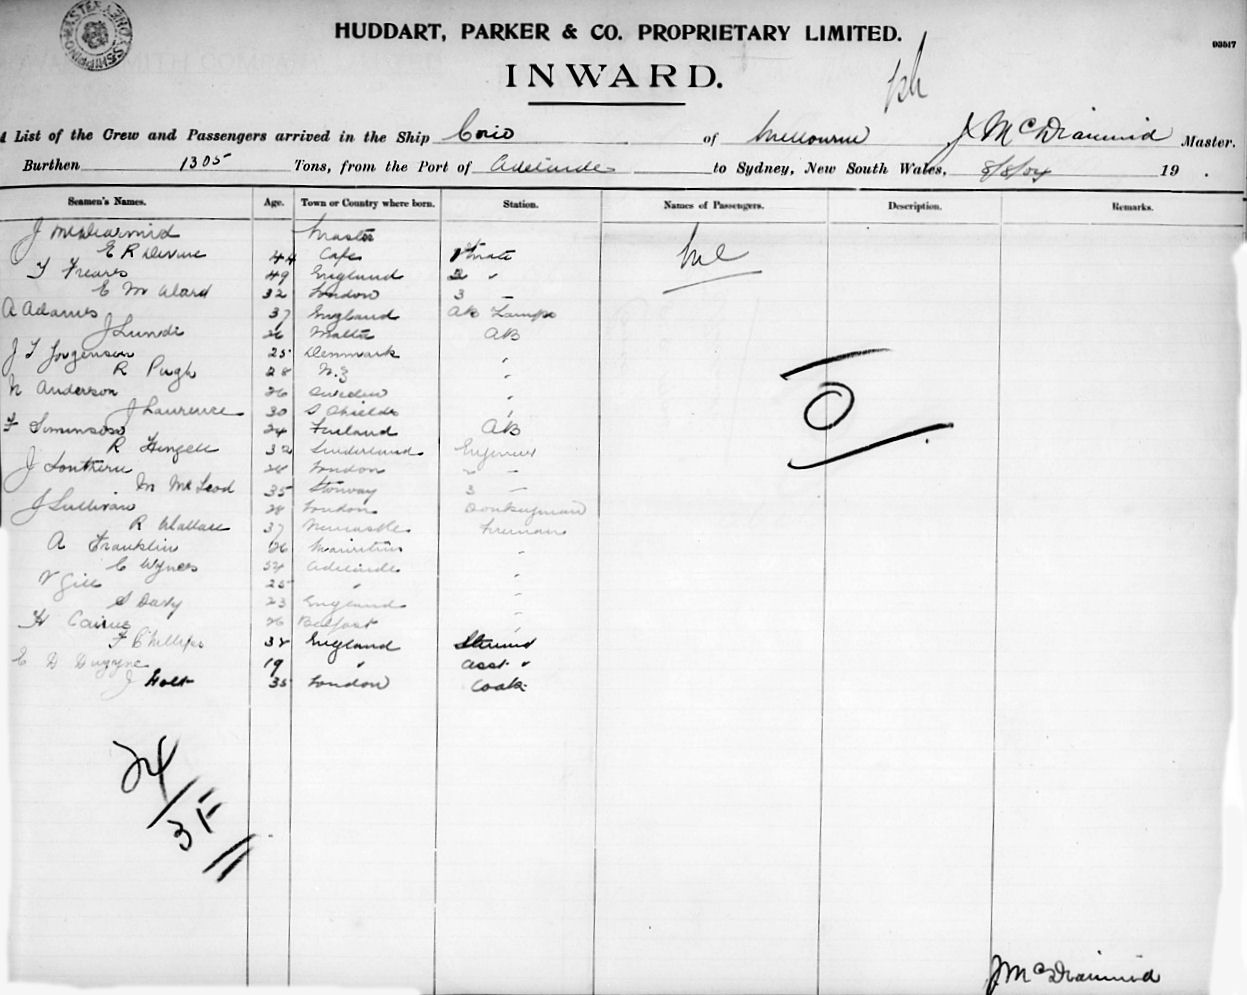 SHIPPING MASTER'S
HUDDART, PARKER & CO. PROPRIETARY LIMITED.
93517
INWARD.
A List of the Crew and Passengers arrived in the Ship Corio of Melbourne J McDiarmid Master.
Burthen 1305 Tons, from the Port of Adelaide to Sydney, New South Wales, 8/8/04 19 .
Seamen's Names. Age. Town or Country where born. Station. Names of Passengers. Description. Remarks.
J McDiarmid Master
E R Devine 44 Cape 1st Mate Nil
T Freares 49 England 2 "
E M Ward 32 London 3 –
A Adams 37 England AB Lamps
J Lundi 26 Malta AB
J T Jorgenson 25 Denmark "
R Pugh 28 N.Z "
N Anderson 26 Sweden "
J Laurence 30 S Shields "
F Simonson 24 Finland AB
R Hingell 32 Sunderland Engineer
J Southern 28 London 2 –
M McLeod 35 Stonway 3 –
J Sullivan 28 London Donkeyman
R Wallace 37 Newcastle Fireman
A Franklin 26 Mauritius "
C Wyners 54 Adelaide
V Gill 25 " "
S Davy 23 England "
H Cairns 26 Belfast "
F Phillips 38 England Steward
E D Duzyne 19 " Asst "
J Holt 35 London Cook
0
24/3F
J McDiarmid